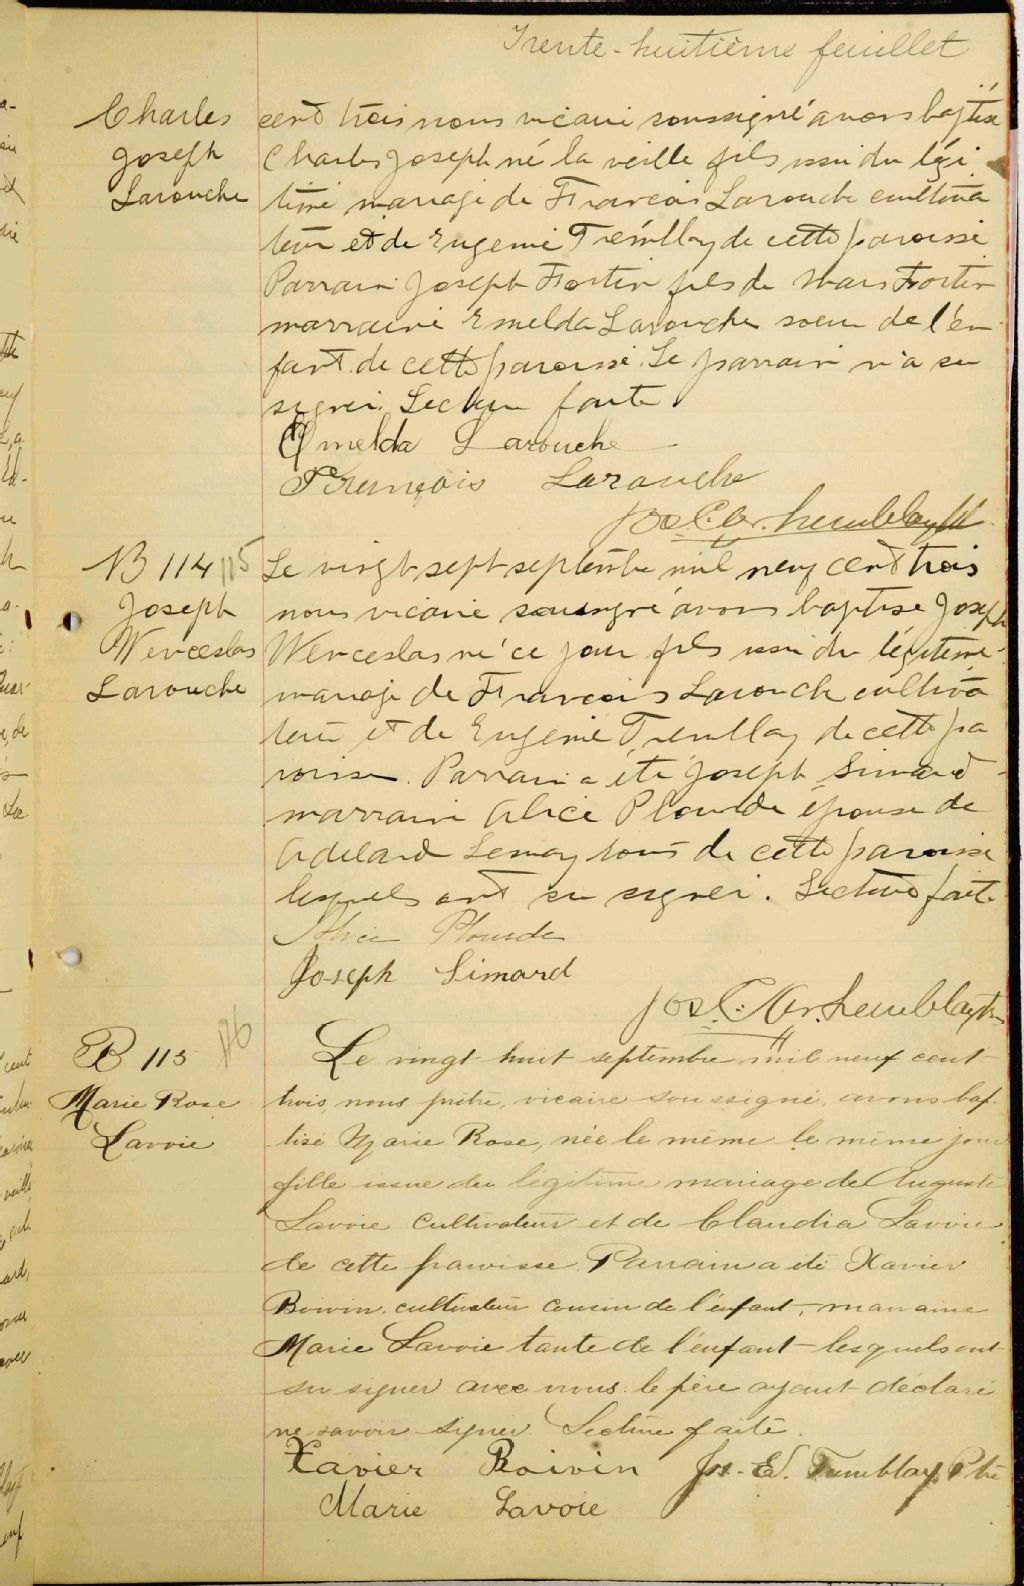 Trente-huitième feuillet
Charles
Joseph
Larouche
cent trois nous vicaire soussigné avons baptisé
Charles Joseph né la veille fils issu du légi
time mariage de Francois Larouche cultiva
teur et de Eugenie Tremblay de cette paroisse
Parrain Joseph Fortin fils de Mars Fortin
marraine Emelda Larouche soeur de l'en
fant de cette paroisse. Le parrain n'a su
signer. Lecture faite
Emelda Larouche
François Larouche
Jos. C. Tremblay
B 114 115
Joseph
Wenceslas
Larouche
Le vingt sept septembre mil neuf cent trois
nous vicaire soussigné avons baptisé Joseph
Wenceslas né ce jour fils issu du légitime
mariage de Francois Larouche cultiva
teur et de Eugenie Tremblay de cette pa
roisse. Parrain a été Joseph Simard
marraine Alice Plourde épouse de
Adelard Lemay tous de cette paroisse
lesquels ont su signer. Lecture faite
Alice Plourde
Joseph Simard
Jos. C. Tremblay
B 115 116
Marie Rose
Lavoie
Le vingt huit septembre mil neuf cent
trois, nous prêtre, vicaire soussigné, avons bap-
tisé Marie Rose, née le même le même jour
fille issue du légitime mariage de Auguste
Lavoie cultivateur et de Claudia Lavoie
de cette paroisse. Parrain a été Xavier
Boivin, cultivateur cousin de l'enfant, marraine
Marie Lavoie tante de l'enfant lesquels ont
su signer avec nous: le père ayant déclaré
ne savoir signer. Lecture faite.
Xavier Boivin Jos. Ed. Tremblay Ptre
Marie Lavoie